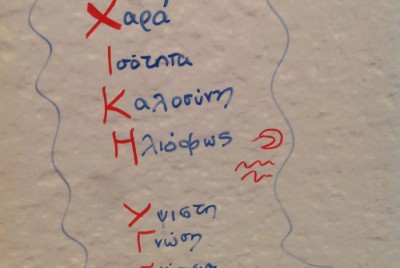 Χαρά
Ισότητα
Καλοσύνη
Ηλιόφως
Υψιστη
Γνώση